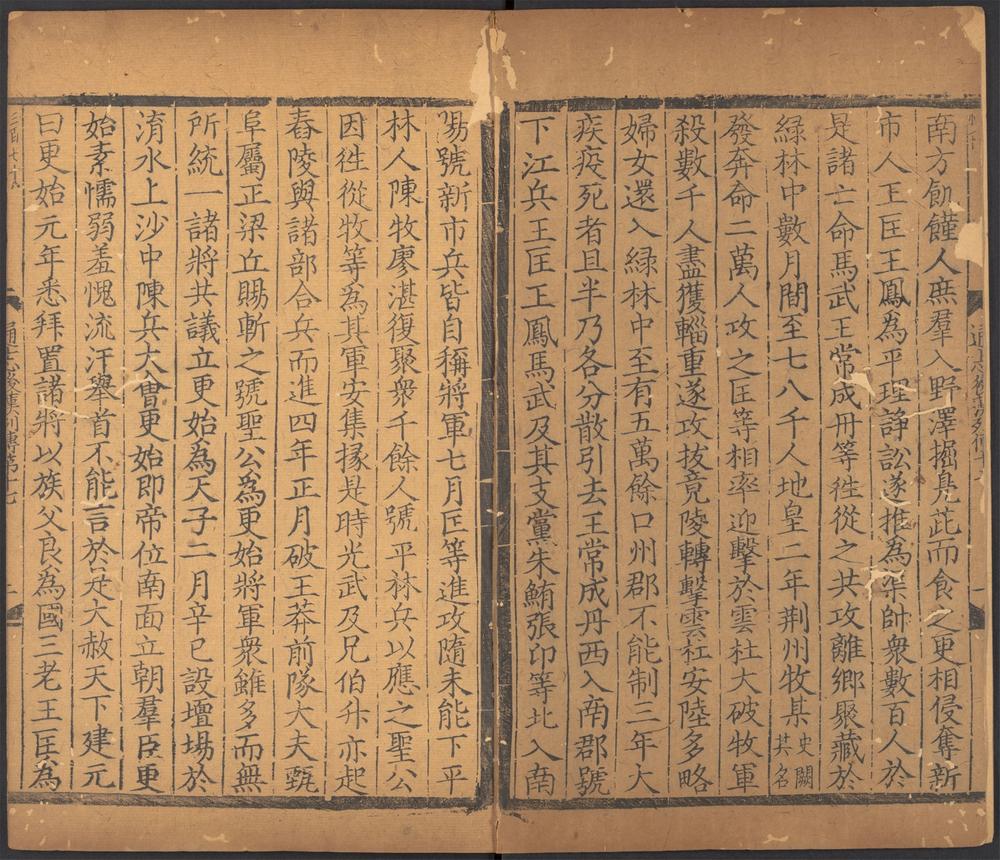 南方飢饉人庶羣入野澤掘鳧茈而食之更相侵奪新
市人王匡王鳳為平理諍訟遂推為渠帥衆數百人於
是諸亡命馬武王常成丹等徃從之共攻離鄉聚藏於
綠林中數月間至七八千人地皇二年荆州牧某史闕其名
發奔命二萬人攻之匡等相率迎擊於雲杜大破牧軍
殺數千人盡獲輜重遂攻拔竟陵轉擊雲杜安陸多略
婦女還入綠林中至有五萬餘口州郡不能制三年大
疾疫死者且半乃各分散引去王常成丹西入南郡號
下江兵王匡王鳳馬武及其支黨朱鮪張印等北入南
陽號新市兵皆自稱將軍七月匡等進攻隨未能下平
林人陳牧廖湛復聚衆千餘人號平林兵以應之聖公
因徃從牧等為其軍安集掾是時光武及兄伯升亦起
舂陵與諸部合兵而進四年正月破王莽前隊大夫甄
阜屬正梁丘賜斬之號聖公為更始將軍衆雖多而無
所統一諸將共議立更始為天子二月辛巳設壇場於
淯水上沙中陳兵大會更始即帝位南面立朝羣臣更
始素懦弱羞愧流汗舉首不能言於是大赦天下建元
曰更始元年悉拜置諸將以族父良為國三老王匡為
通志後漢列傳第十七